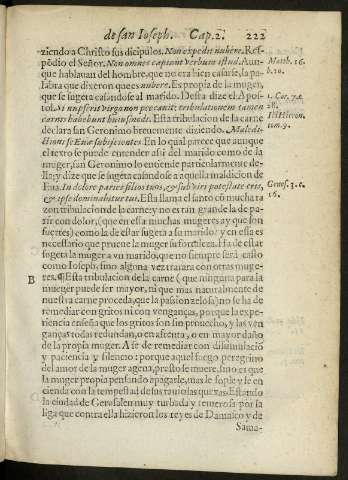 de san Ioseph. Cap. 2. 222
ziendo a Christo sus dicipulos. Non expedit nubere. Res-
põdio el Señor. Non omnes capiunt verbum istud. Aun-
que hablauan del hombre, que no era bien casarse, la pa-
labra que dixeron que es nubere. Es propia de la muger,
que se sugeta casandose al marido. Desta dize el Apos-
tol. Si nupserit virgo non peccauit: tribulationem tamen
carnis habebunt huiusmodi. Esta tribulacion de la carne
declara san Geronimo breuemente diziendo. Maledi-
ctioni Euæ subiicentes. En lo qual parece que aunque
el texto se puede entender assi del marido como de la
muger, san Geronimo lo entiende particularmente de
lla: y dize que se sugeta casandose a aquella maldicion de
Eua. In dolore paries filios tuos, & sub viri potestate eris,
& ipse dominabitur tui. Esta llama el santo cõ mucha ra
zon tribulacion de la carne: y no es tan grande la de pa-
rir con dolor, (que en esta muchas mugeres ay que son
fuertes) como la de estar sugeta a su marido: y en essa es
necessario que prueue la muger su fortaleza. Ha de estar
sugeta la muger a vn marido, que no siempre será casto
como Ioseph, sino alguna vez tratara con otras muge-
res. ¶ Esta tribulacion de la carne (que ninguna para la
mueger puede ser mayor, ni que mas naturalmente de
nuestra carne proceda, que la passion zelosa) no se ha de
remediar con gritos ni con venganças, porque la expe-
riencia enseña que los gritos son sin prouecho, y las ven
ganças todas redundan, o en afrenta, o en mayor daño
de la propia muger. A se de remediar con dissimulaciõ
y paciencia y silencio: porque aquel fuego peregrino
del amor de la muger agena, presto se muere, sino es que
la muger propia pensando apagarle, mas le sople y le en
cienda con la tempestad de sus rauiosas quexas. Estando
la ciudad de Gerusalen muy turbada y temerosa por la
liga que contra ella hizieron los reyes de Damasco y de
Sama-
Matth. 16.
b. 10.
1. Cor. 7. e.
28.
D. Hieron.
tom. 9.
Genes. 3. c.
16.
B